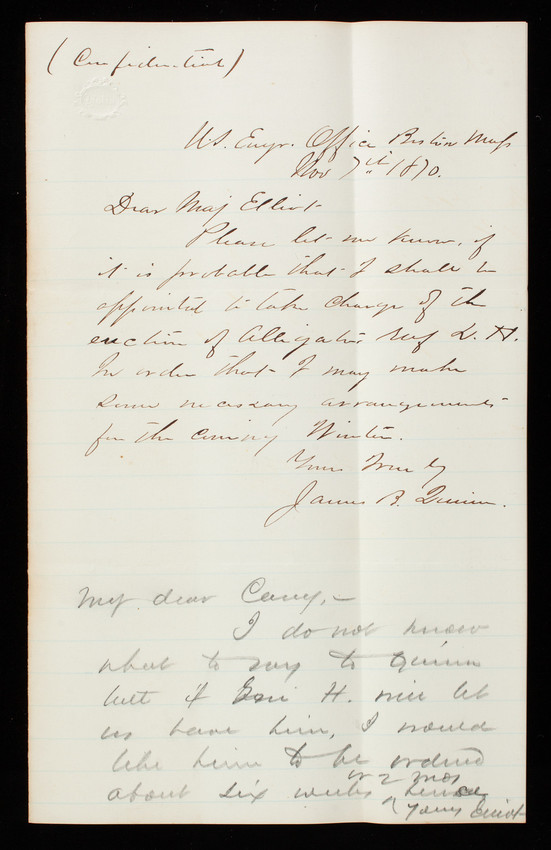 (Confidential)
U.S. Engr. Office Boston Mass
Nov 7th 1870.
Dear Maj Elliot
Please let me know, if
it is probable that I shall be
appointed to take charge of the
erection of Alligator Reef L. H.
In order that I may make
some necessary arrangements
for the coming Winter.
Yours Truly
James B. Quinn.
My dear Casey,-
I do not know
what to say to Quinn
but if Genl H. will let
us have him, I would
like him to be ordered
or 2 mos
about six weeks ^ hence
Yours Elliot